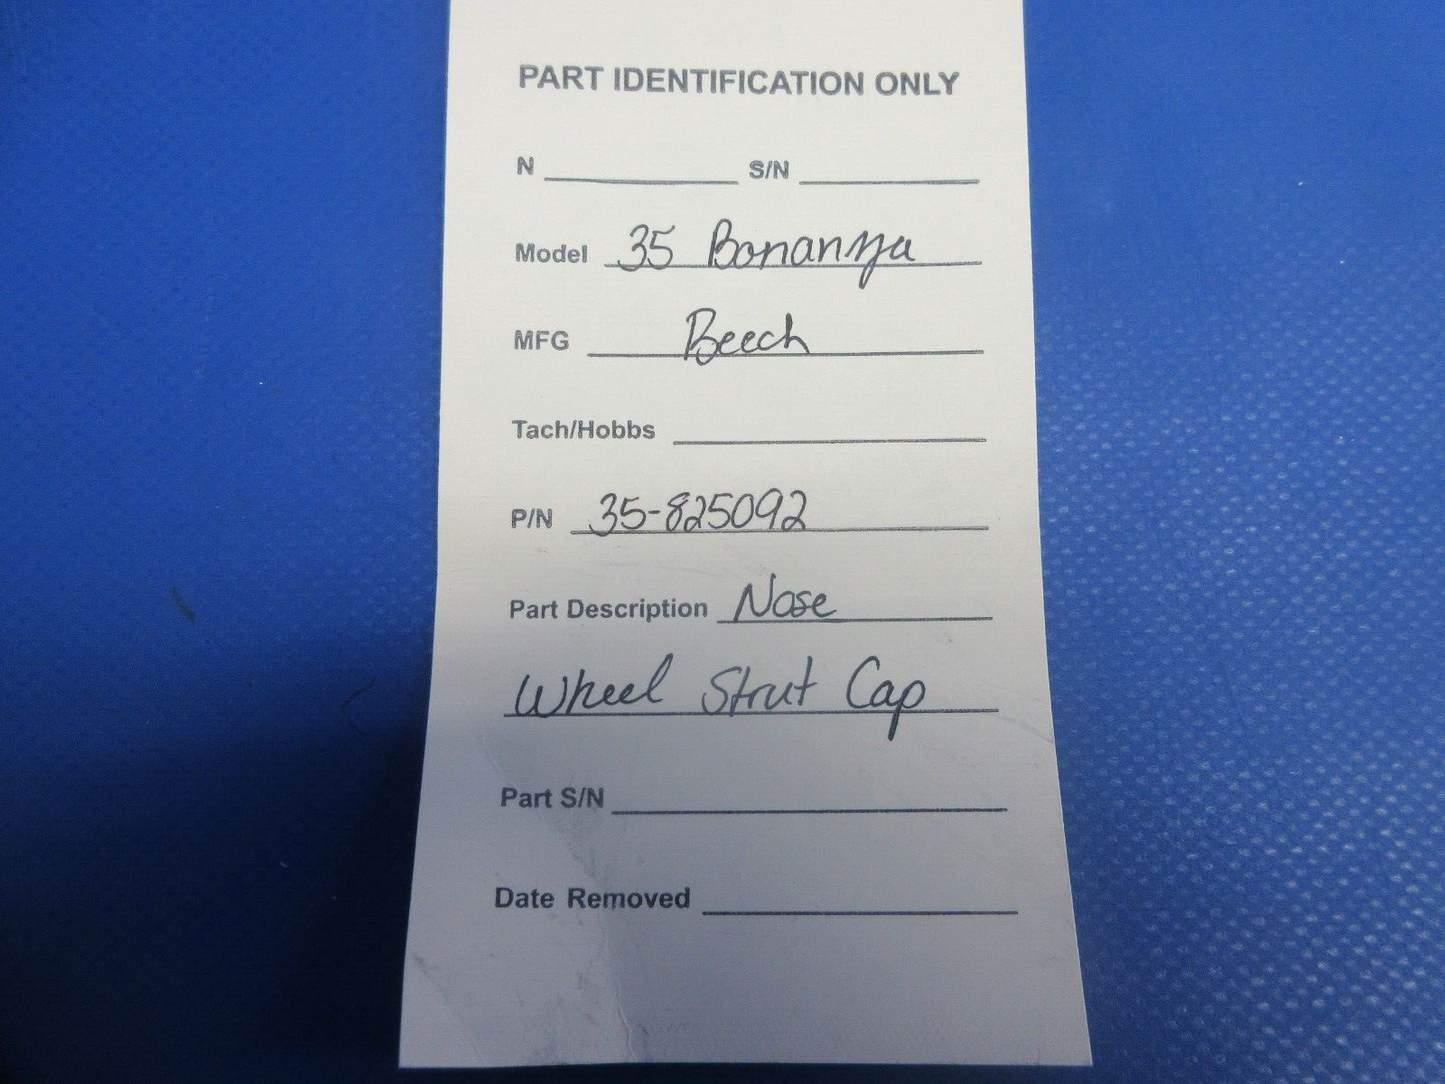 PART IDENTIFICATION ONLY
N S/N
Model 35 Bonanza
MFG Beech
Tach/Hobbs
P/N 35-825092
Part Description Nose
Wheel Strut Cap
Part S/N
Date Removed